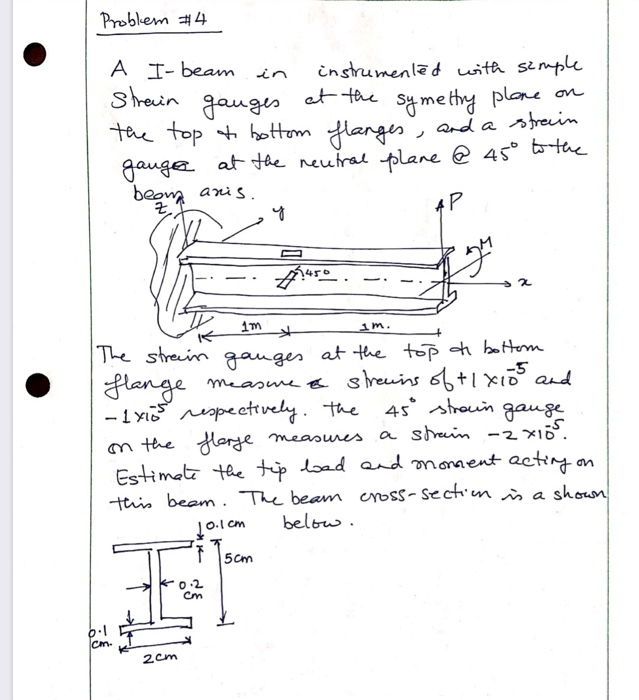 Problem #4
A I-beam in instrumented with simple
Strain gauges at the symettry plane on
the top & bottom flanges, and a strain
gauge at the neutral plane @ 45° to the
beam axis.
z
y
P
M
45°
x
1m
1m.
The strain gauges at the top & bottom
flange measure strains of +1×10⁻⁵ and
-1×10⁻⁵ respectively. The 45° strain gauge
on the flange measures a strain -2×10⁻⁵.
Estimate the tip load and moment acting on
this beam. The beam cross-section is a shown
below.
0.1cm
5cm
0.2
cm
0.1
cm.
2cm